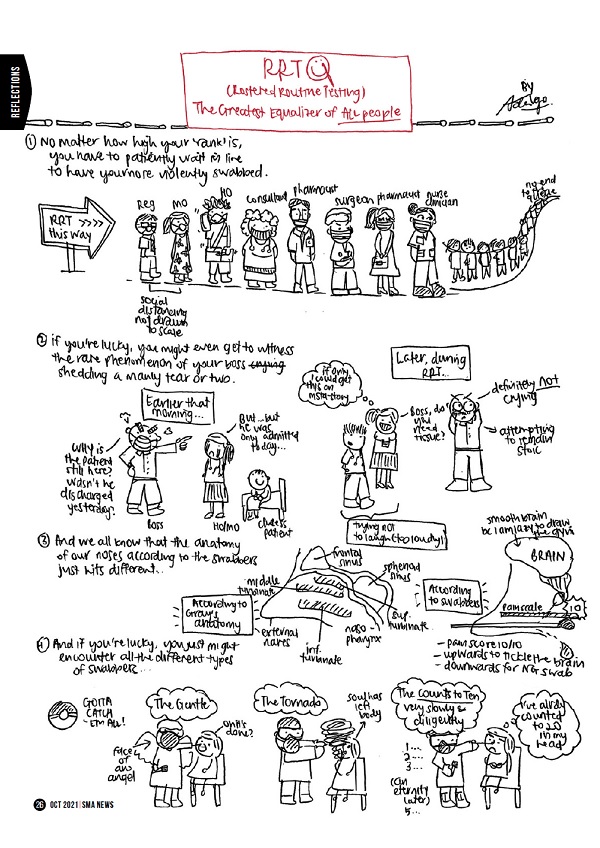 REFLECTIONS
RRTQ
(Rostered Routine Testing)
The Greatest Equalizer of All people
BY
① No matter how high your 'rank' is,
you have to patiently wait in line
to have your nose violently swabbed.
RRT >>>>
this way
Reg
MO
HO
consultant
pharmacist
surgeon
pharmacist
nurse
clinician
no end
to
queue
social
distancing
not drawn
to scale
② if you're lucky, you might even get to witness
the rare phenomenon of your boss crying
shedding a manly tear or two.
Earlier that
morning...
Why is
the patient
still here?
Wasn't he
discharged
yesterday?
Boss
But... but
he was
only admitted
today...
HoImo
clueless
patient
Later, during
RRT...
if only
I could get
this on
insta-story
Boss, do
you
need
tissue?
definitely NOT
crying
attempting
to remain
stoic
trying not
to laugh (too loudly)
③ And we all know that the anatomy
of our noses according to the swabbers
just hits different...
According to
Gray's
anatomy
frontal
sinus
sphenoid
sinus
middle
turbinate
sup.
turbinate
external
nares
inf.
turbinate
naso-
pharynx
According
to swabbers
smooth brain
bc i am lazy to draw
the gyri
BRAIN
pain scale
10
- pain score 10/10
- upwards to tickle the brain
- downwards for NG swab
④ And if you're lucky, you just might
encounter all the different types
of swabbers...
GOTTA
CATCH
'EM ALL!
The Gentle
face
of
an
angel
oh it's
done?
The Tornado
soul has
left
body
The Counts to Ten
very slowly &
diligently
1...
2...
3...
(an
eternity
later)
5...
I've alrdy
counted
to 20
in my
head
26 OCT 2021 | SMA NEWS